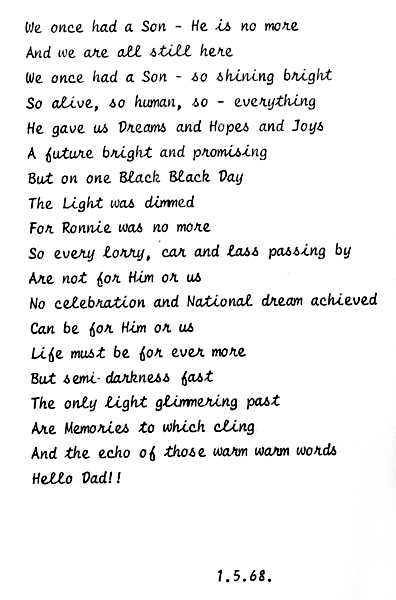 We once had a Son - He is no more
And we are all still here
We once had a Son - so shining bright
So alive, so human, so - everything
He gave us Dreams and Hopes and Joys
A future bright and promising
But on one Black Black Day
The Light was dimmed
For Ronnie was no more
So every lorry, car and lass passing by
Are not for Him or us
No celebration and National dream achieved
Can be for Him or us
Life must be for ever more
But semi-darkness fast
The only light glimmering past
Are Memories to which cling
And the echo of those warm warm words
Hello Dad!!
1.5.68.